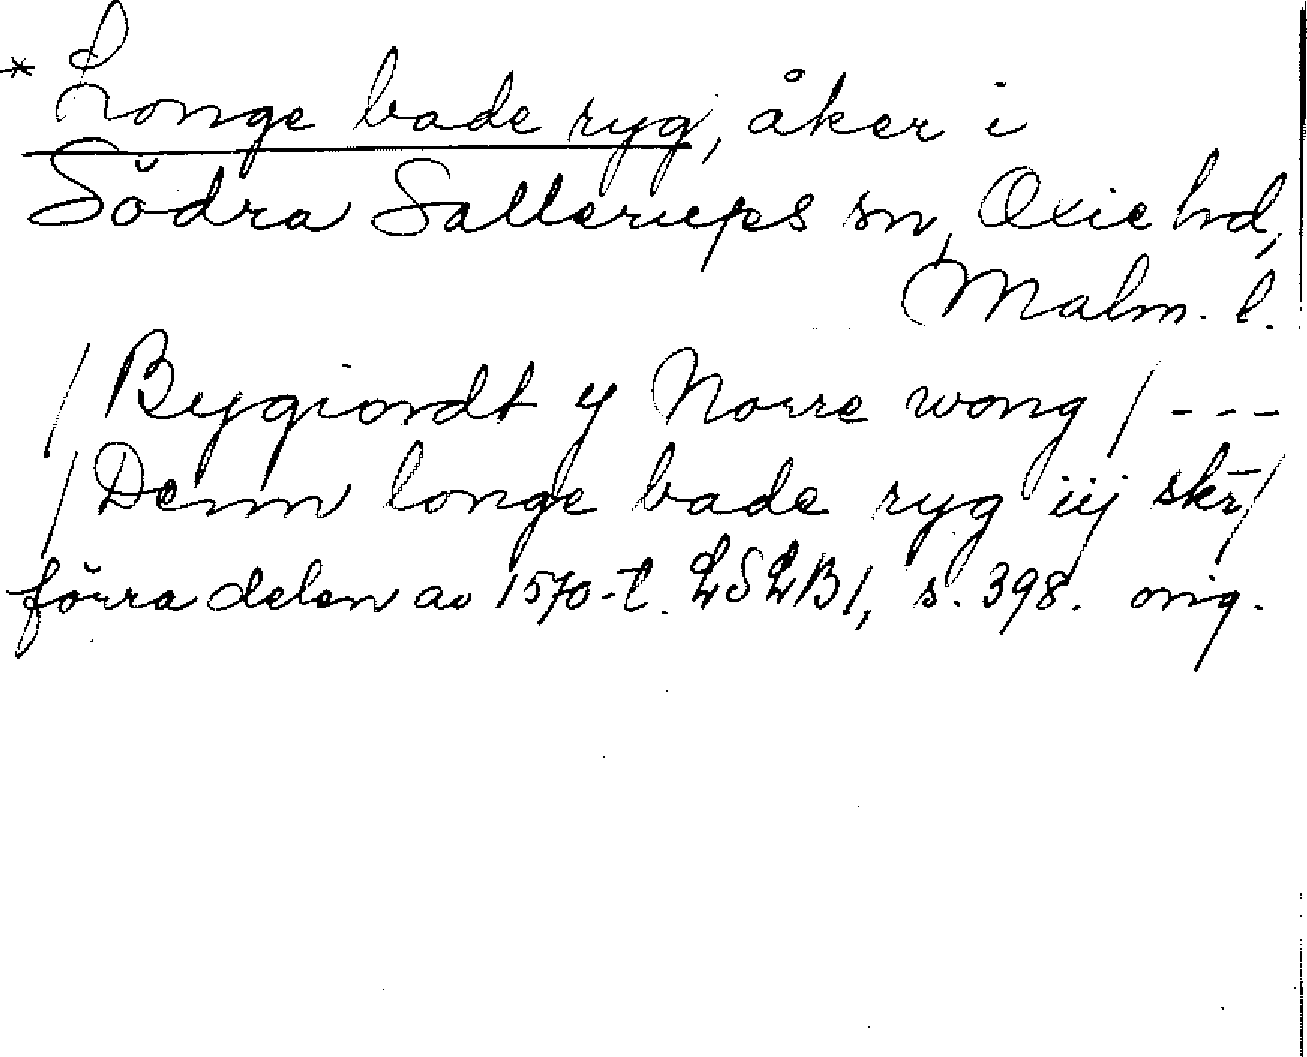 * Longe bade ryg, åker i
Södra Sallerups sn, Oxie hd,
Malm. l.
/ Bygiordt y Norre wong / ---
/ Denn longe bade ryg iij skr̄ /
förra delen av 1570-t. LSLB 1, s. 398. orig.